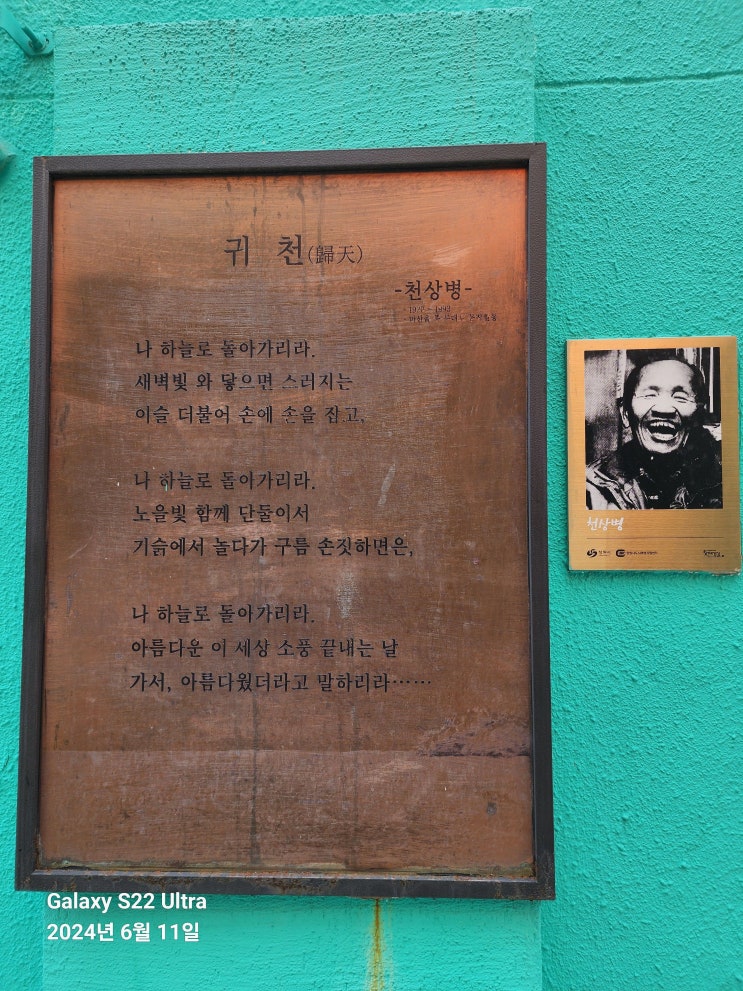 귀 천(歸天)
-천상병-
나 하늘로 돌아가리라.
새벽빛 와 닿으면 스러지는
이슬 더불어 손에 손을 잡고,
나 하늘로 돌아가리라.
노을빛 함께 단둘이서
기슭에서 놀다가 구름 손짓하면은,
나 하늘로 돌아가리라.
아름다운 이 세상 소풍 끝내는 날
가서, 아름다웠더라고 말하리라······
천상병
Galaxy S22 Ultra
2024년 6월 11일